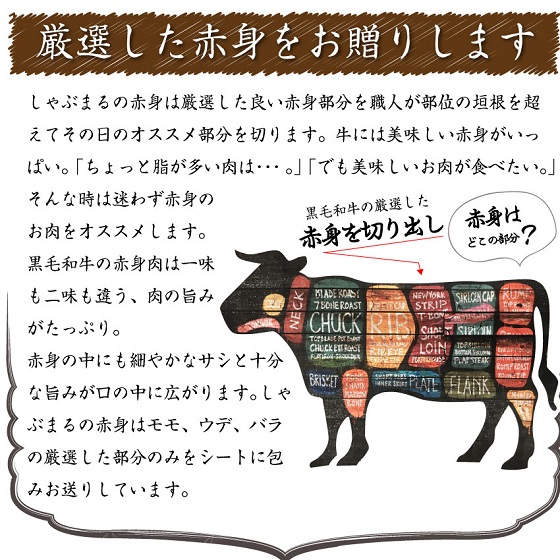 厳選した赤身をお贈りします
しゃぶまるの赤身は厳選した良い赤身部分を職人が部位の垣根を超
えてその日のオススメ部分を切ります。牛には美味しい赤身がいっ
ぱい。「ちょっと脂が多い肉は・・・。」「でも美味しいお肉が食べたい。」
そんな時は迷わず赤身の
お肉をオススメします。
黒毛和牛の赤身肉は一味
も二味も違う、肉の旨み
がたっぷり。
赤身の中にも細やかなサシと十分
な旨みが口の中に広がります。しゃ
ぶまるの赤身はモモ、ウデ、バラ
の厳選した部分のみをシートに包
みお送りしています。
黒毛和牛の厳選した
赤身を切り出し
赤身は
どこの部分?
NECK
BLADE ROAST
7 BONE ROAST
CHUCK
TOP BLADE POT ROAST
CHUCK POT ROAST
RIB
RIB EYE
NEW YORK
STRIP
T-BONE
SHORT
LOIN
SIRLOIN CAP
SIRLOIN
FLAP STEAK
RUMP
RUMP ROAST
BRISKET
PLATE
FLANK